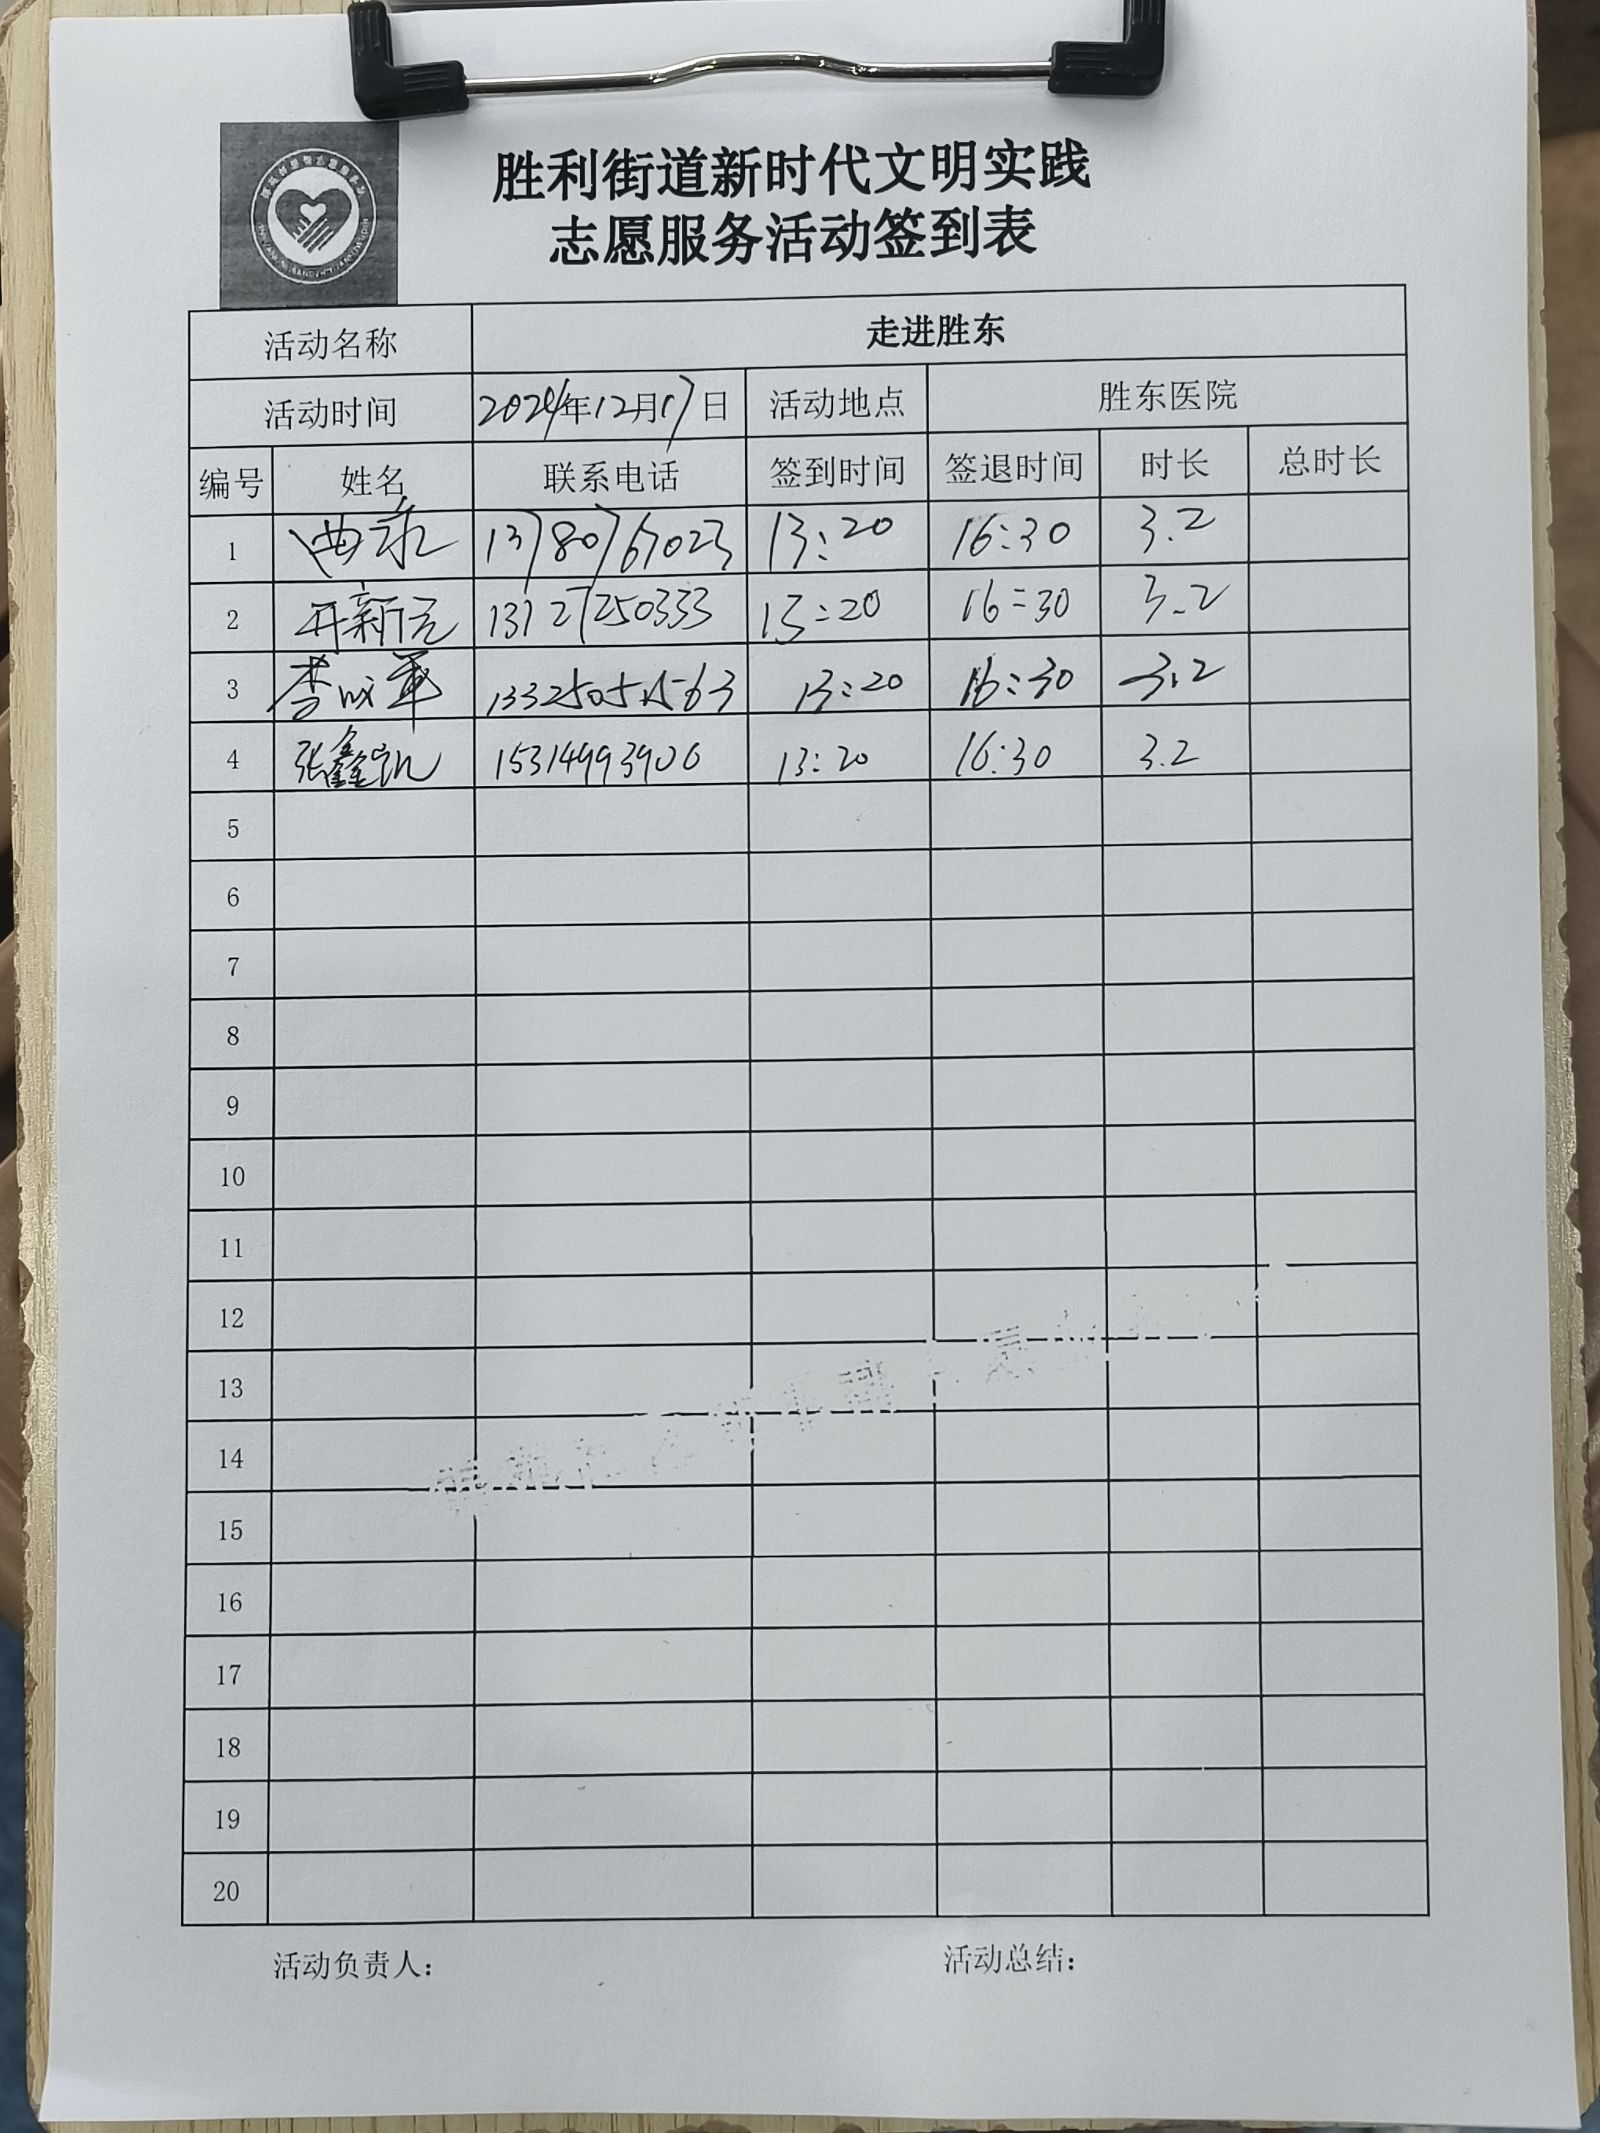 胜利街道新时代文明实践
志愿服务活动签到表
活动名称 走进胜东
活动时间 2024年12月17日 活动地点 胜东医院
编号 姓名 联系电话 签到时间 签退时间 时长 总时长
1 曲永 13780767023 13:20 16:30 3.2
2 新 13127250333 13:20 16:30 3.2
3 李成军 13325051563 13:20 16:30 3.2
4 张鑫凯 15314993906 13:20 16:30 3.2
5
6
7
8
9
10
11
12
13
14
15
16
17
18
19
20
活动负责人： 活动总结：